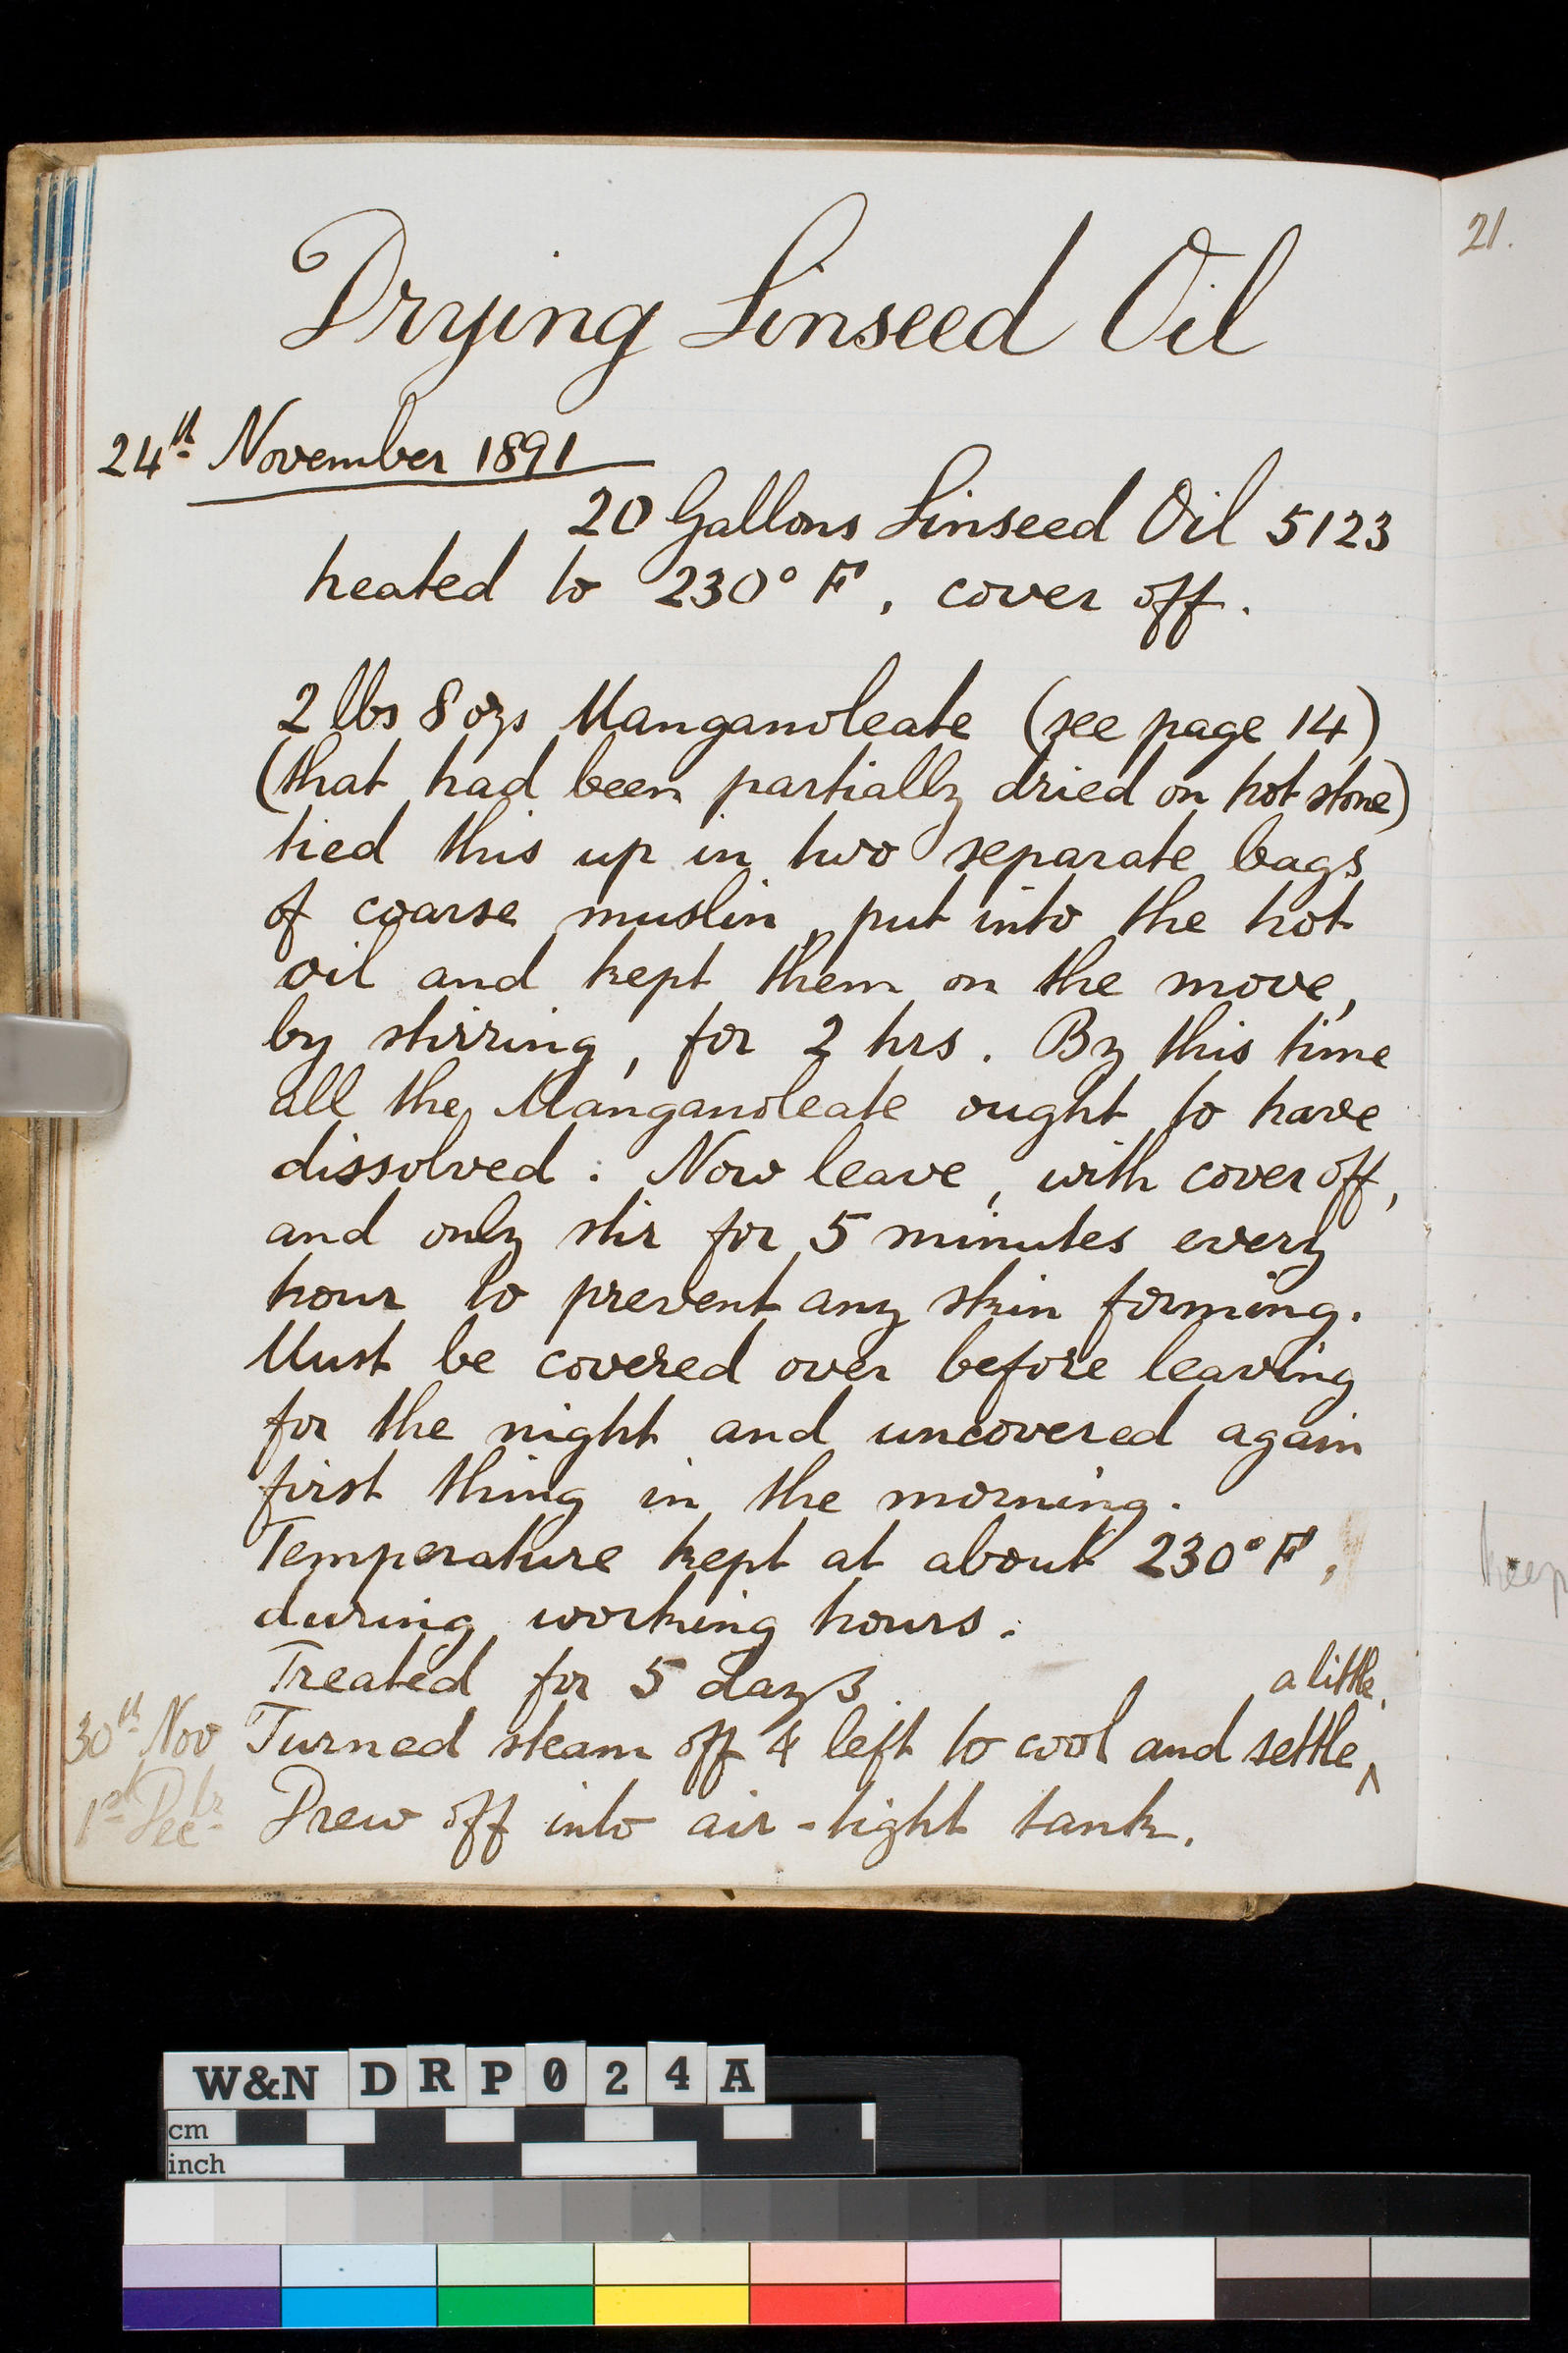 Drying Linseed Oil
24th November 1891
20 Gallons Linseed Oil 5123
heated to 230° F, cover off.
2 lbs 8 ozs Manganoleate (see page 14)
(that had been partially dried on hot stone)
tied this up in two separate bags
of coarse muslin, put into the hot
oil and kept them on the move,
by stirring, for 2 hrs. By this time
all the Manganoleate ought to have
dissolved. Now leave, with cover off,
and only stir for 5 minutes every
hour to prevent any skin forming.
Must be covered over before leaving
for the night and uncovered again
first thing in the morning.
Temperature kept at about 230° F,
during working hours.
Treated for 5 days
a little.
30th Nov Turned steam off & left to cool and settle ^
1st Decbr Drew off into air-tight tank.
21.
keep
W&N DRP024A
cm
inch